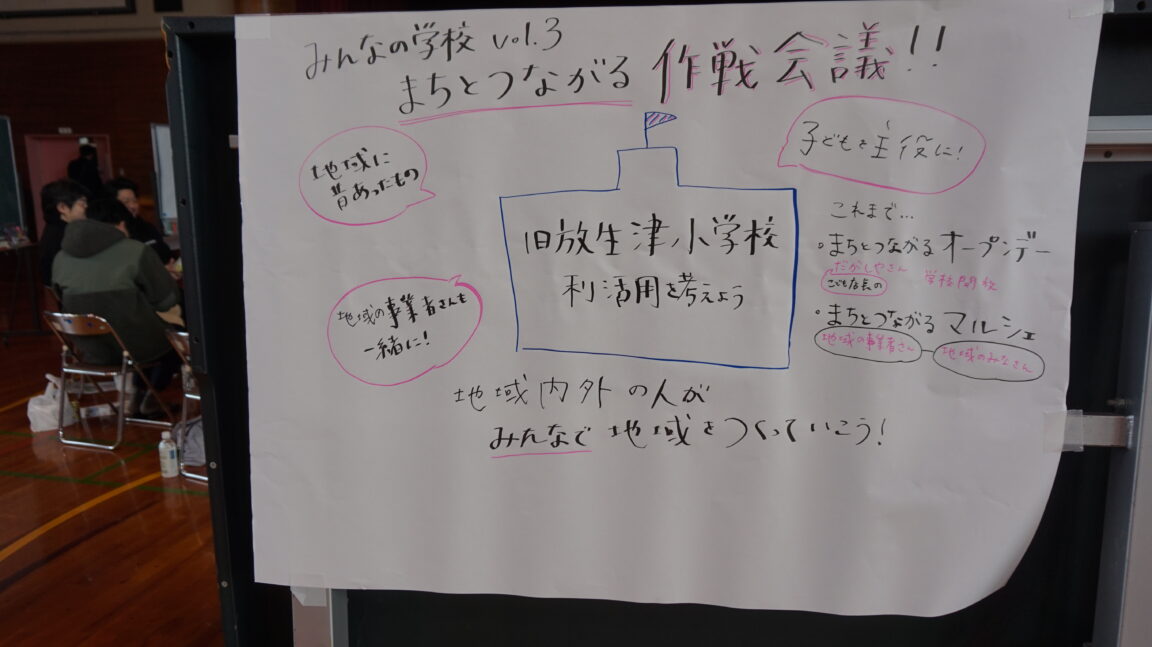 みんなの学校 vol.3
まちとつながる 作戦会議!!
地域に
昔あったもの
子どもを主役に!
旧放生津小学校
利活用を考えよう
これまで…
・まちとつながるオープンデー
だがしやさん
こども店長の
学校開校
・まちとつながるマルシェ
地域の事業者さん
地域のみなさん
地域の事業者さんも
一緒に!
地域内外の人が
みんなで地域をつくっていこう!